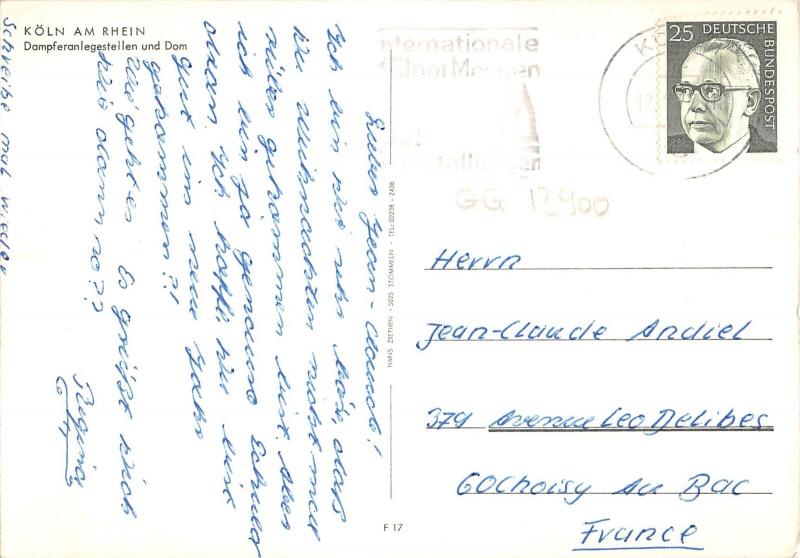 KÖLN AM RHEIN
Dampferanlegestellen und Dom
Internationale
Kölner Messen
und
Ausstellungen
KÖ
12.
25 DEUTSCHE
BUNDESPOST
GG 12900
Jean-Claude!
Ich bin Dir sehr böse, dass
Du Weihnachten nicht mal
rüber gekommen bist. Aber
ich bin ja genauso Schuld
daran. Ich hoffe, Du bist
gut ins neue Jahr
gekommen?!
Wie geht es Es grüßt Dich
Dir dann so??
Regina
Schreibe mal wieder
HANS ZIETHEN - 5025 STOMMELN - TEL: 02238 - 2438
F 17
Herrn
Jean-Claude Andiel
379 Avenue Leo Delibes
60Choisy Au Bac
France